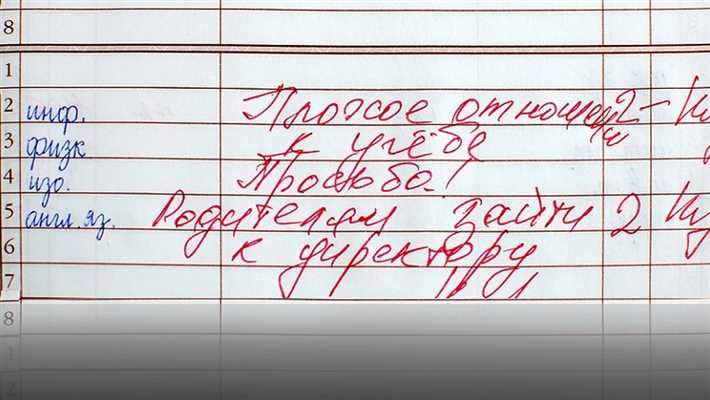 8
1
2 инф. Плохое отношен 2-
3 физк к учёбе
4 изо. Просьба!
5 англ. яз. Родителям зайти 2
6 к директору
7 !!!
8
1
2